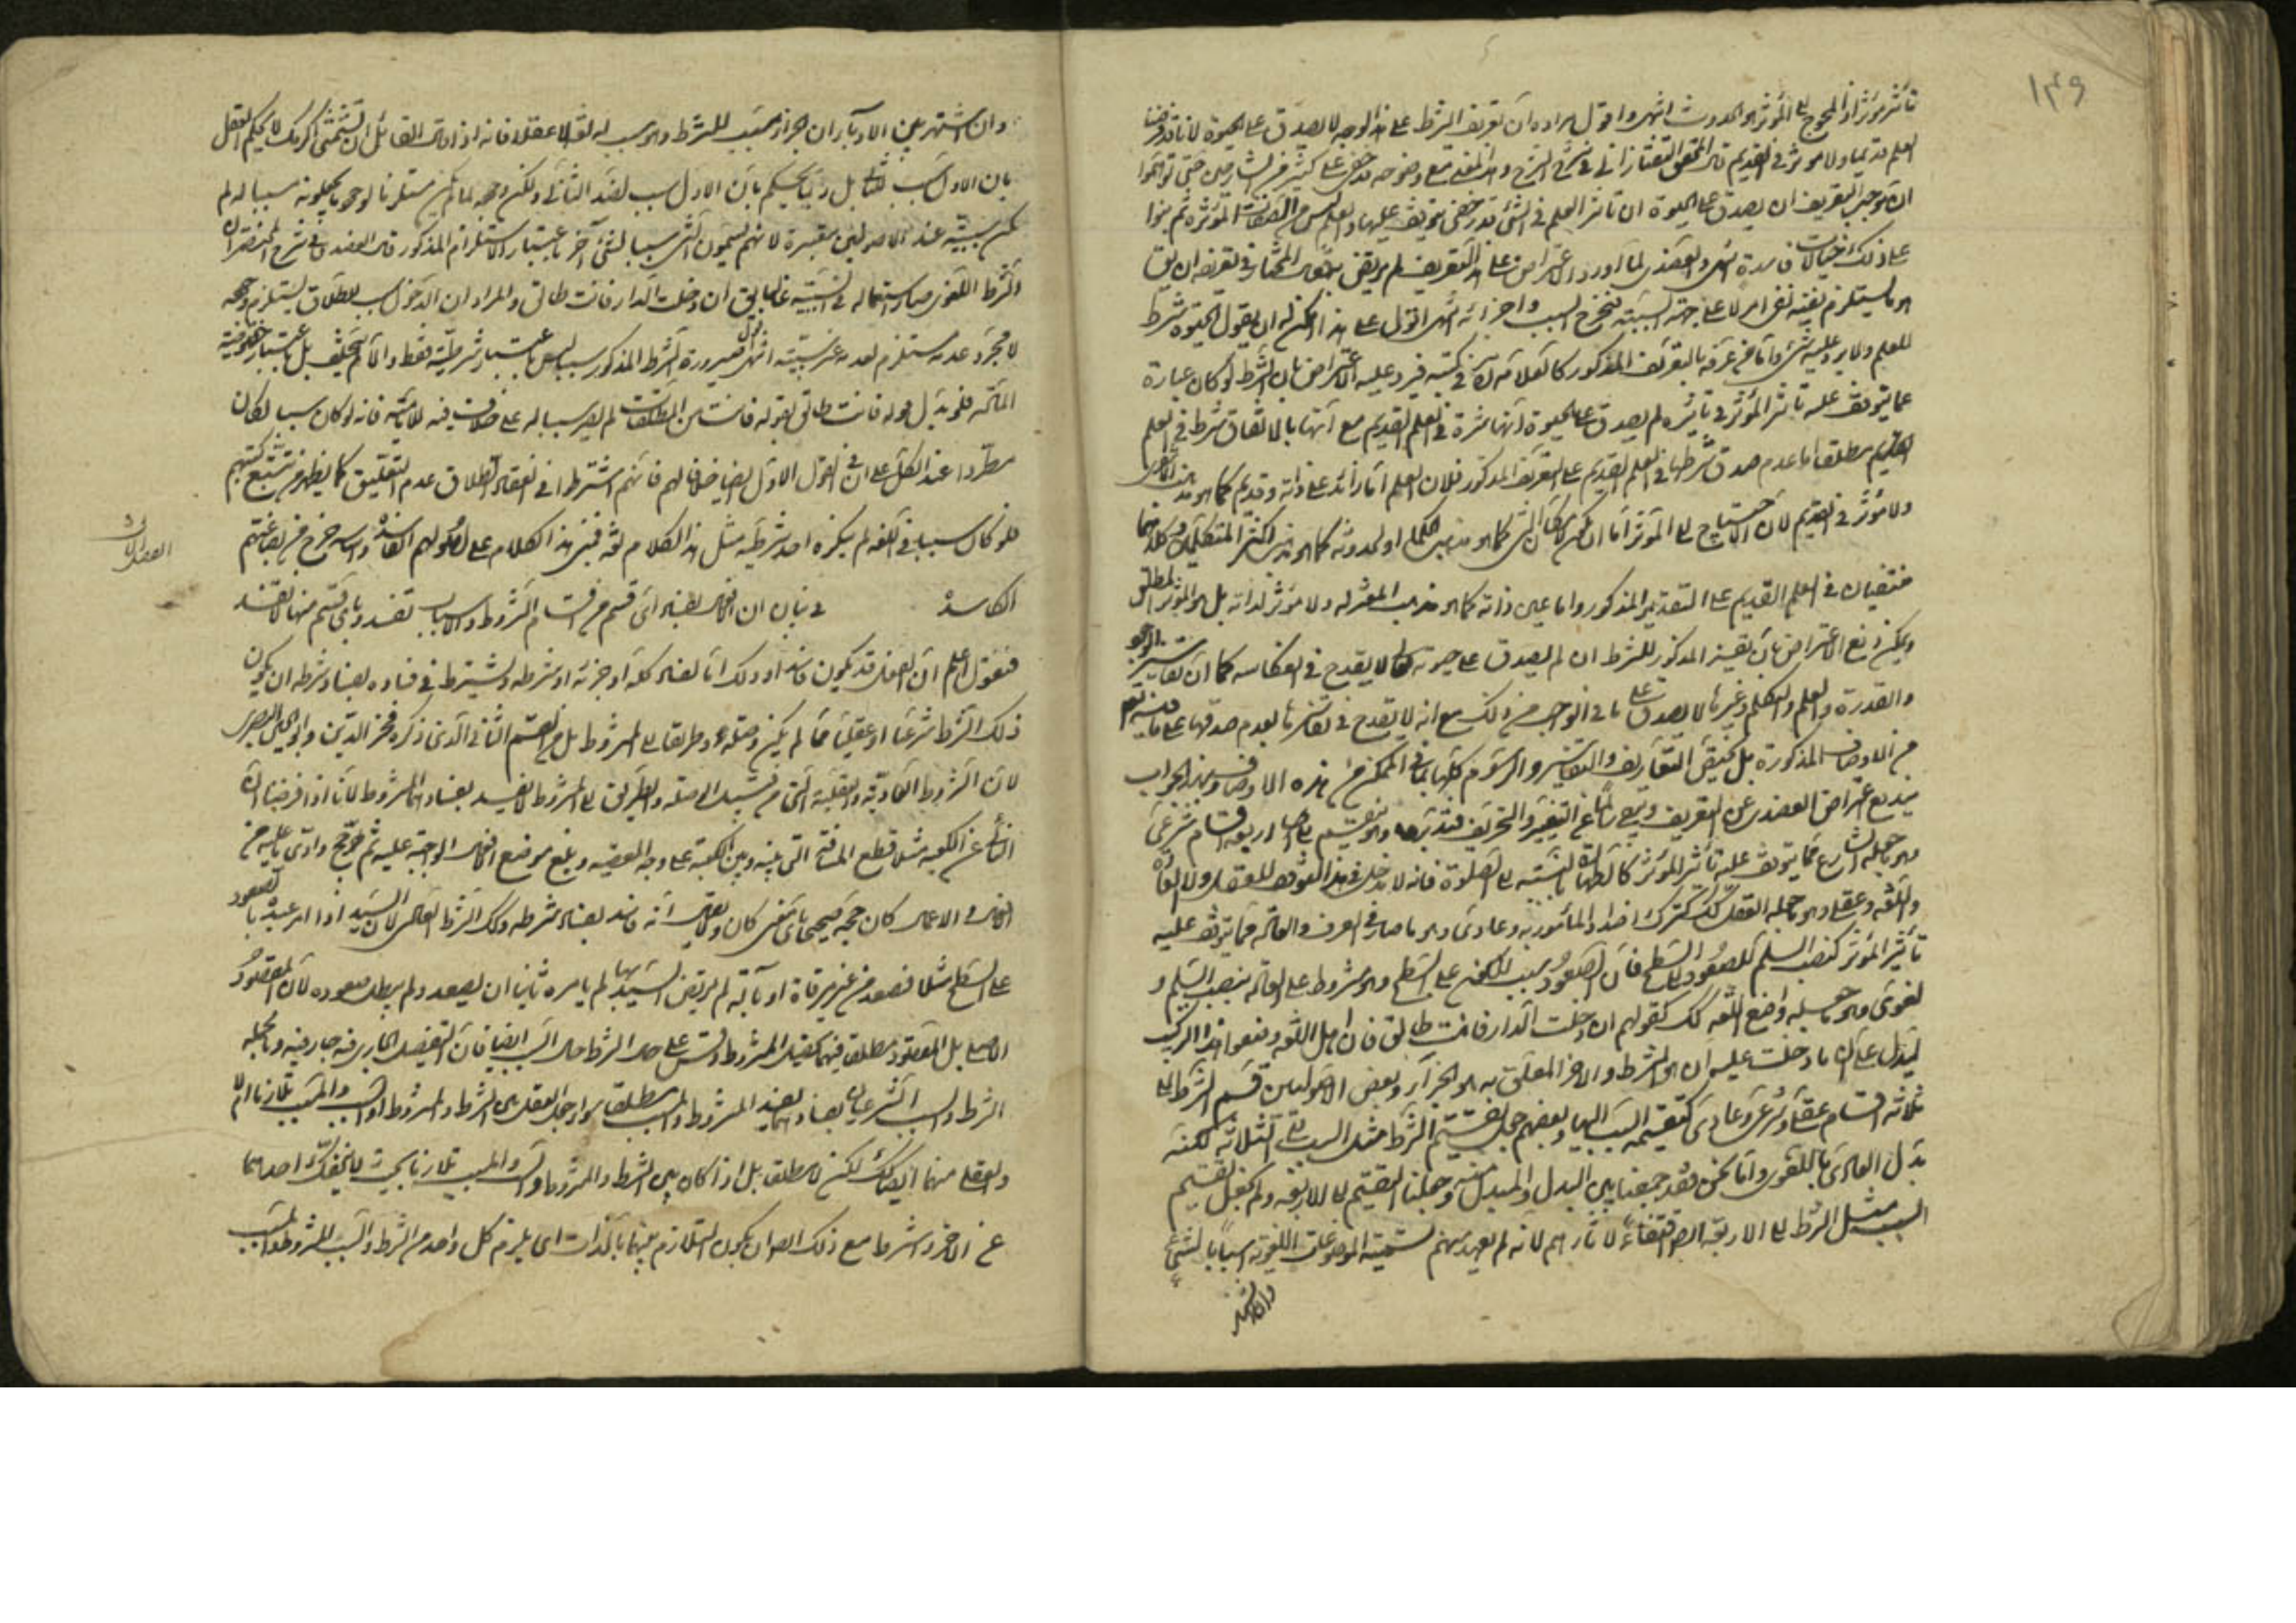 ١٣٩
تأثير مؤثر اذ المحوج الى المؤثر هو الحدوث انتهى واقول مراده ان تعريف الشرط على هذا الوجه لا يصدق على الحيوة لانا قد فرضنا
العلم قديما ولا مؤثر في القديم قال المحقق التفتازاني في شرح الشرح وهذا المعنى مع وضوحه قد خفى على كثير من الشارحين حتى توهموا
ان توجيه التعريف ان يصدق على الحيوة ان تأثير العلم في الشئ قد يتوقف عليها والعلم ليس من الصفات المؤثرة ثم بنوا
على ذلك خيالات فاسدة انتهى والعضدي لما اورد الاعتراض على هذا التعريف لم يرتض به المختار في تعريفه ان يق
هو ما يستلزم نفيه نفى امر لا على جهة السببية فيخرج السبب واجزائه انتهى اقول على هذا يمكن له ان يقول الحيوة شرط
للعلم ولا يرد عليه شئ واما من عرفه بالتعريف المذكور كالعلامة في كتبه فيرد عليه الاعتراض بان الشرط لو كان عبارة
عما يتوقف عليه تأثير المؤثر في تأثيره لم يصدق على الحيوة انها شرط في العلم القديم مع انها بالاتفاق شرط في العلم
القديم مطلقا اما عدم صدق شرطها في العلم القديم على التعريف المذكور فلان العلم اما زائد على ذاته وقديم كما هو مذهب الاشاعرة
ولا مؤثر في القديم لان الاحتياج الى المؤثر اما ان يكون لامكان الشئ كما هو مذهب الحكماء او لحدوثه كما هو مذهب اكثر المتكلمين وكلاهما
منتفيان في العلم القديم على التقدير المذكور واما عين ذاته كما هو مذهب المعتزله ولا مؤثر لذاته بل هو المؤثر المطلق
ويمكن دفع الاعتراض بان تفسير المذكور للشرط ان لم يصدق على حيوته تعالى لا يقدح في انعكاسه كما ان تفاسير الوجود
والقدرة والعلم والتكلم وغيرها لا يصدق على ما في الواجب من ذلك مع انه لا يقدح في تفاسيرها بعدم صدقها على ما فيه تعم
من الاوصاف المذكورة بل يختص التعاريف والتفاسير والرسوم كلها بما في الممكن من هذه الاوصاف وبهذا الجواب
يندفع اعتراض العضدي عن التعريف ويبقى سالما عن التغيير والتحريف فتدبر وهو ينقسم الى اربعة اقسام شرعي
وهو ما جعله الشارع مما يتوقف عليه تأثير المؤثر كالطهارة بالنسبة الى الصلوة فانه لا مدخل في هذا التوقف للعقل ولا العادة
واللغه وعقلي وهو ما جعله العقل كك كترك اضداد المأمور به وعادي وهو ما صار في العرف والعادة مما يتوقف عليه
تأثير المؤثر كنصب السلم للصعود الى السطح فان الصعود سبب للكون على السطح وهو مشروط على العادة بنصب السلم و
لغوى وهو ما جعله واضع اللغه كك كقولهم ان دخلت الدار فانت طالق فان اهل اللغه وضعوا هذا التركيب
ليدل على ان ما دخلت عليه ان هو الشرط والاخر المعلق به هو الجزاء وبعض الاصوليين قسم الشرط الى
ثلاثه اقسام عقلي وشرعي وعادي كتقسيمه السبب اليها وبعضهم جعل تقسيم الشرط مثل السبب الى الثلاثه لكنه
بدل العادي باللغوى واما نحن فقد جمعنا بين البدل والمبدل منه وجعلنا التقسيم الى الاربعة ولم نجعل تقسيم
السبب مثل الشرط الى الاربعة ايض اقتفاء لاثارهم لانه لم يعهد منهم تسمية الموضوعات اللغوية اسبابا لشئ
وان اشتهر
وان اشتهر بين الادباء ان الجزاء مسبب للشرط وهو سبب له لغة لا عقلا فانه اذا قال القائل ان تشتمني اكرمك لا يحكم العقل
بان الاول سبب للثاني بل ربما يحكم بان الاول سبب لضد الثاني ولكن وجوده لما يكون مستلزما لوجوده يجعلونه سببا له ولم
تكن سببيته عند الاصوليين معتبرة لانهم يسمون الشئ سببا لشئ آخر باعتبار الاستلزام المذكور قال العضدي في شرح المختصر ان
الشرط اللغوى صار استعماله في السببية غالبا يق ان دخلت الدار فانت طالق والمراد ان الدخول سبب للطلاق يستلزم وجوده وجوده
لا مجرد عدمه مستلزم لعدمه من غير سببيته انتهى فصيرورة الشرط المذكور سببا ليس باعتبار شرطيته فقط والا لم يتخلف بل باعتبار خصوصية
المادة فلو بدل قوله فانت طالق بقوله فانت من المطلقات لم يصر سببا له على خلاف فيه للامامية فانه لو كان سببا لكان
مطردا عند الكل على ان في القول الاول ايضا خلافا لهم فانهم اشترطوا في انعقاد الطلاق عدم التعليق كما يظهر من تتبع كتبهم
فلو كان سببا في اللغه لم ينكره احد شرطية مثل هذا الكلام لغة فبنى هذا الكلام على اصولهم الفاسدة وانه خرج من بضاعتهم
الكاسدة في بيان ان الافعال بفساد اى قسم من اقسام الشروط والاسباب تفسد وباى قسم منها لا تفسد
فنقول اعلم ان الفعل قد يكون فاسدا وذلك اما لفساد كله او جزئه او شرطه ويشترط في فساده بفساد شرطه ان يكون
ذلك الشرط شرعيا او عقليا مما لم يكن وصلة وطريقا الى المشروط بل من القسم الثاني الذي ذكره فخر الدين وابو الحسين البصرى
لان الشروط العادية والعقلية التي من قبيل الوصلة والطريق الى المشروط لا يفسد بفسادها المشروط لانا اذا فرضنا ان
النائى عن الكعبه مثلا قطع المسافة التي بينه وبين الكعبة على وجه المعصية وبلغ موضع افعال الواجبة عليه ثم حج وادى ما عليه من
الافعال والاعمال كان حجه صحيحا باى نحو كان ولا يق انه فاسد بفساد شرطه وكذلك الشرط العادى لان السيد اذا امر عبده بالصعود
على السطح مثلا فصعد من غير مرقاة او بآلة لم يرتض السيد بها لم يامره ثانيا ان يصعد ولم يبطل صعوده لان المقصود
الاصلى بل المقصود مطلقا فيهما تحصيل المشروط وقس على حال الشرط حال السبب ايضا فان التفصيل الجارى فيه جار فيه وبالجملة
الشرط والسبب الشرعيان بفسادهما يفسد المشروط والمسبب مطلقا سواء جعل العقل بين الشرط والمشروط او السبب والمسبب تلازما ام لا
والعقلي منهما ايضا كذلك لكن لا مطلقا بل اذا كان بين الشرط والمشروط او السبب والمسبب تلازما بحيث لا ينفك احدهما
عن الاخر واشترطوا مع ذلك ايضا ان يكون التلازم بينهما بالذات اى يلزم كل واحد من الشرط والسبب المشروط والمسبب